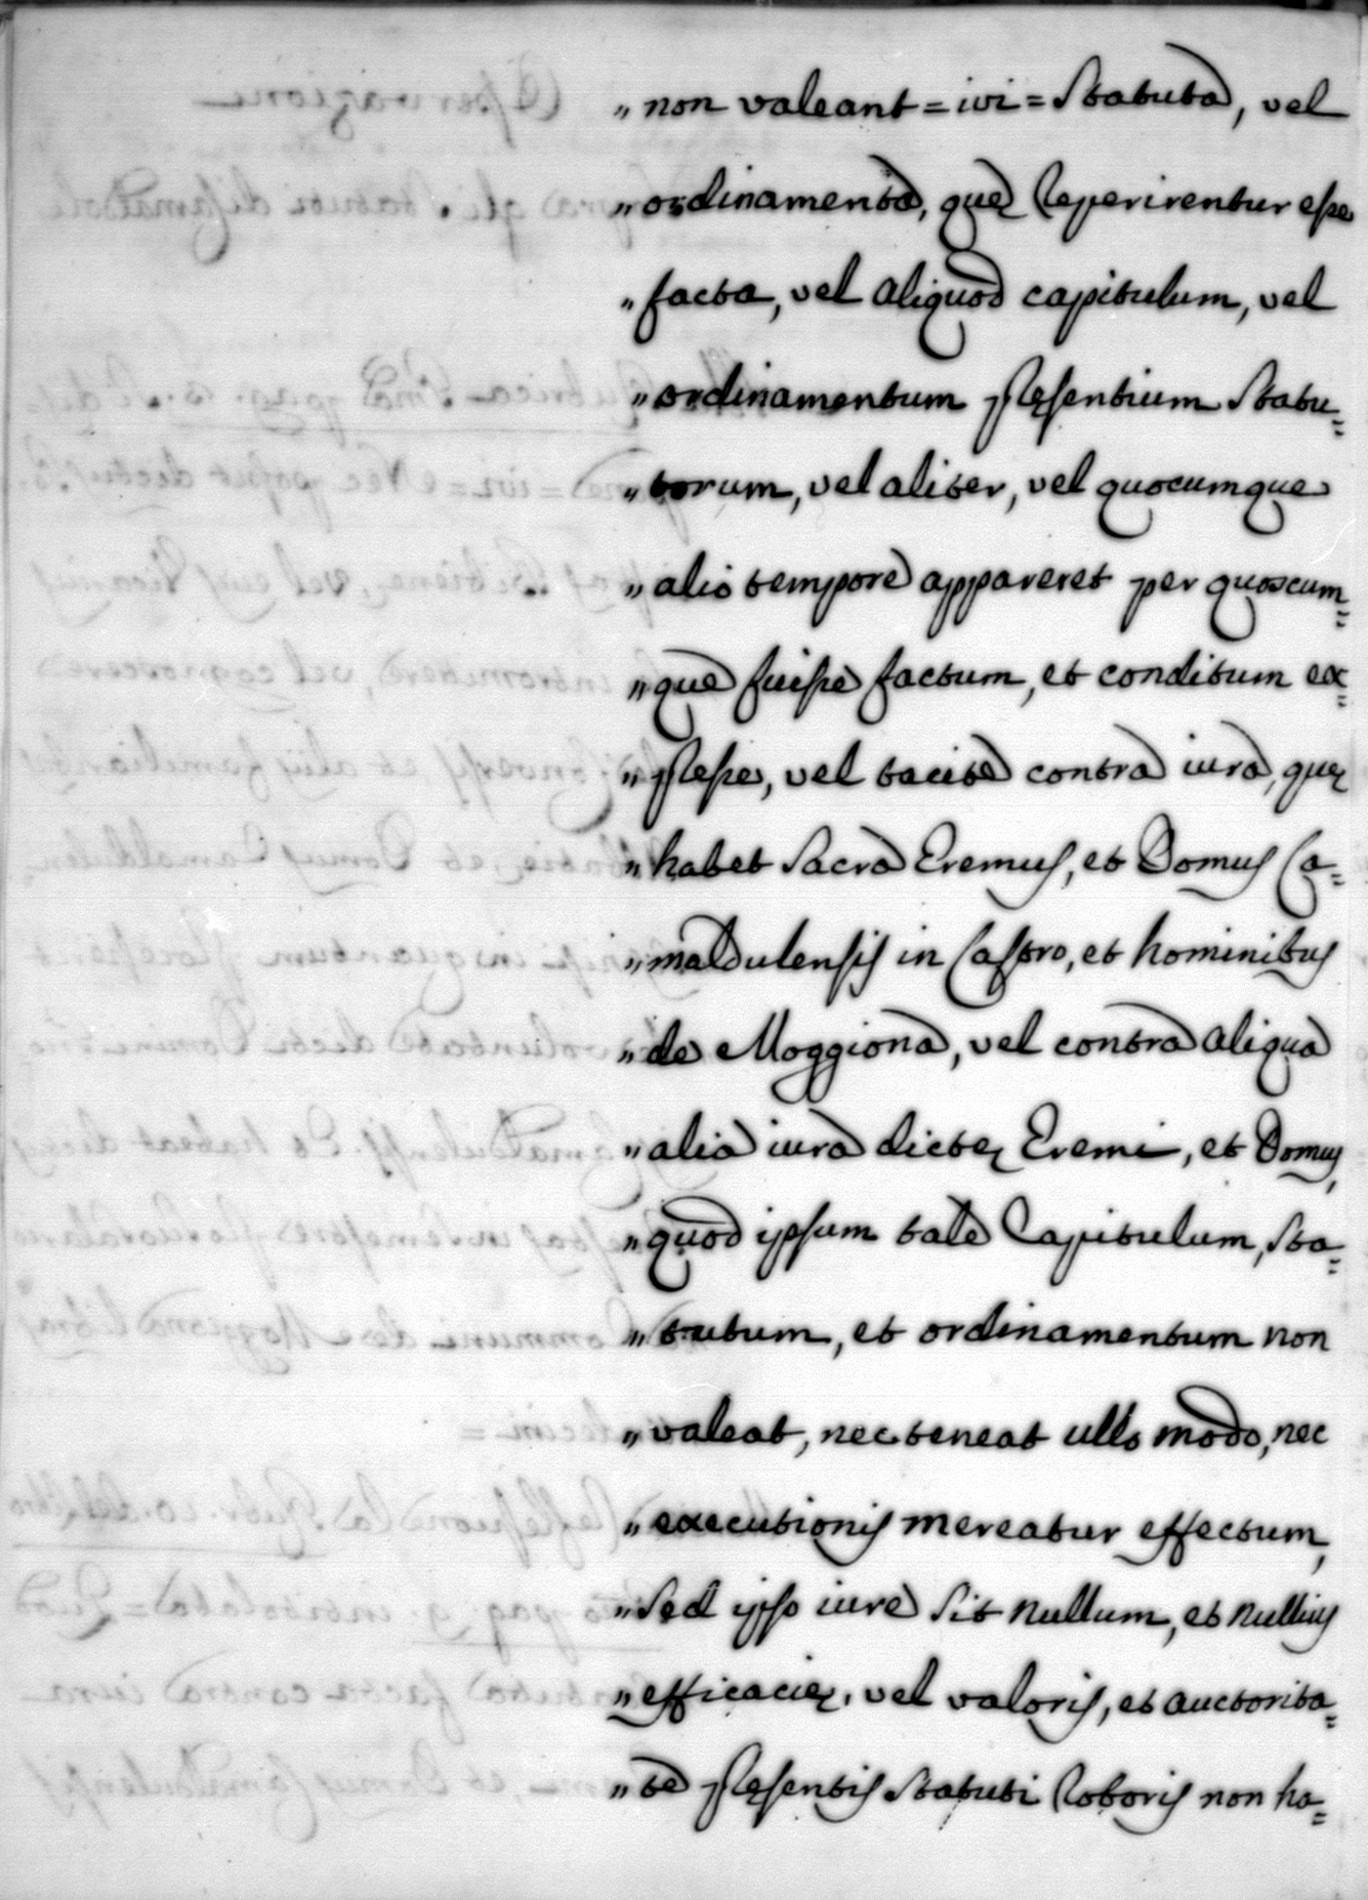 „ non valeant = ivi = Statuta, vel
„ ordinamenta, quę reperirentur esse
„ facta, vel aliquod capitulum, vel
„ ordinamentum pręsentium Statu=
„ torum, vel aliter, vel quocumque
„ alio tempore appareret per quoscum=
„ que fuisse factum, et conditum ex=
„ presse, vel tacite contra iura, quę
„ habet Sacra Eremus, et Domus Ca=
„ maldulensis in Castro, et hominibus
„ de Moggiona, vel contra aliqua
„ alia iura dictę Eremi, et Domus,
„ quod ipsum tale Capitulum, sta=
„ tutum, et ordinamentum non
„ valeat, nec teneat ullo modo, nec
„ executionis mereatur effectum,
„ Sed ipso iure sit nullum, et nullius
„ efficacię, vel valoris, et auctorita=
„ te pręsentis Statuti roboris non ha=